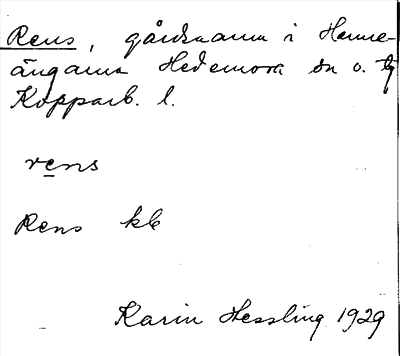 Rens, gårdsnamn i Hanne-
ängarna Hedemora sn o. tg
Kopparb. l.
rens
Rens kb
Karin Hessling 1929